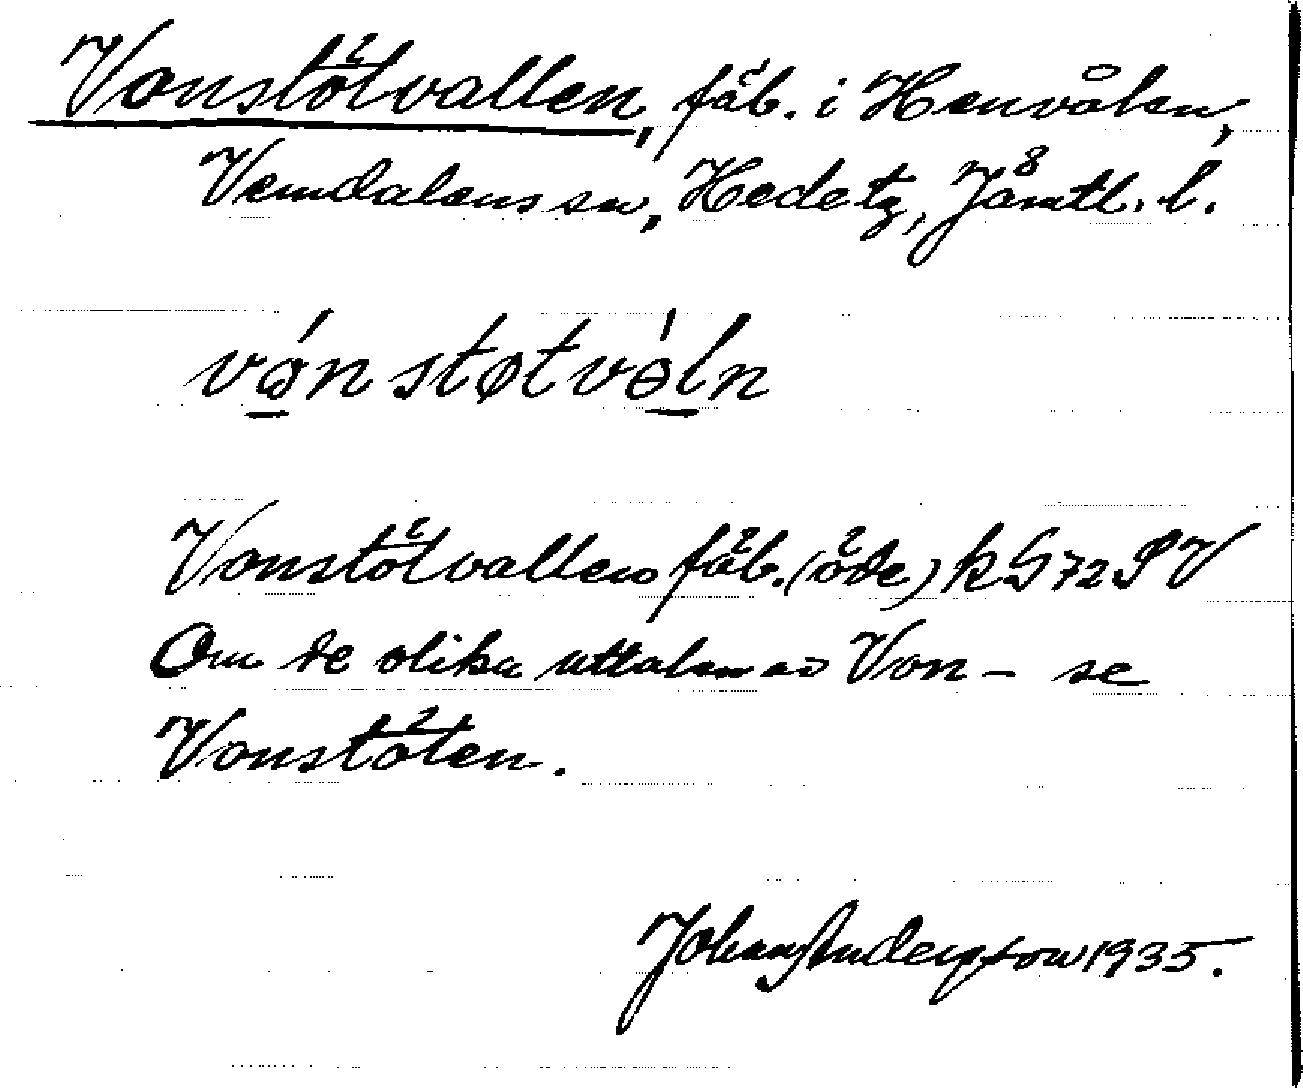 Vonstötvallen, fäb. i Henvålen,
Vemdalens sn, Hede tg, Jämtl. l.
vǿnstøtvɵ́ln
Vonstötvallen fäb. (öde) k G 72 S V
Om de olika uttalen av Von- se
Vonstöten.
Johan Anderzson 1935.